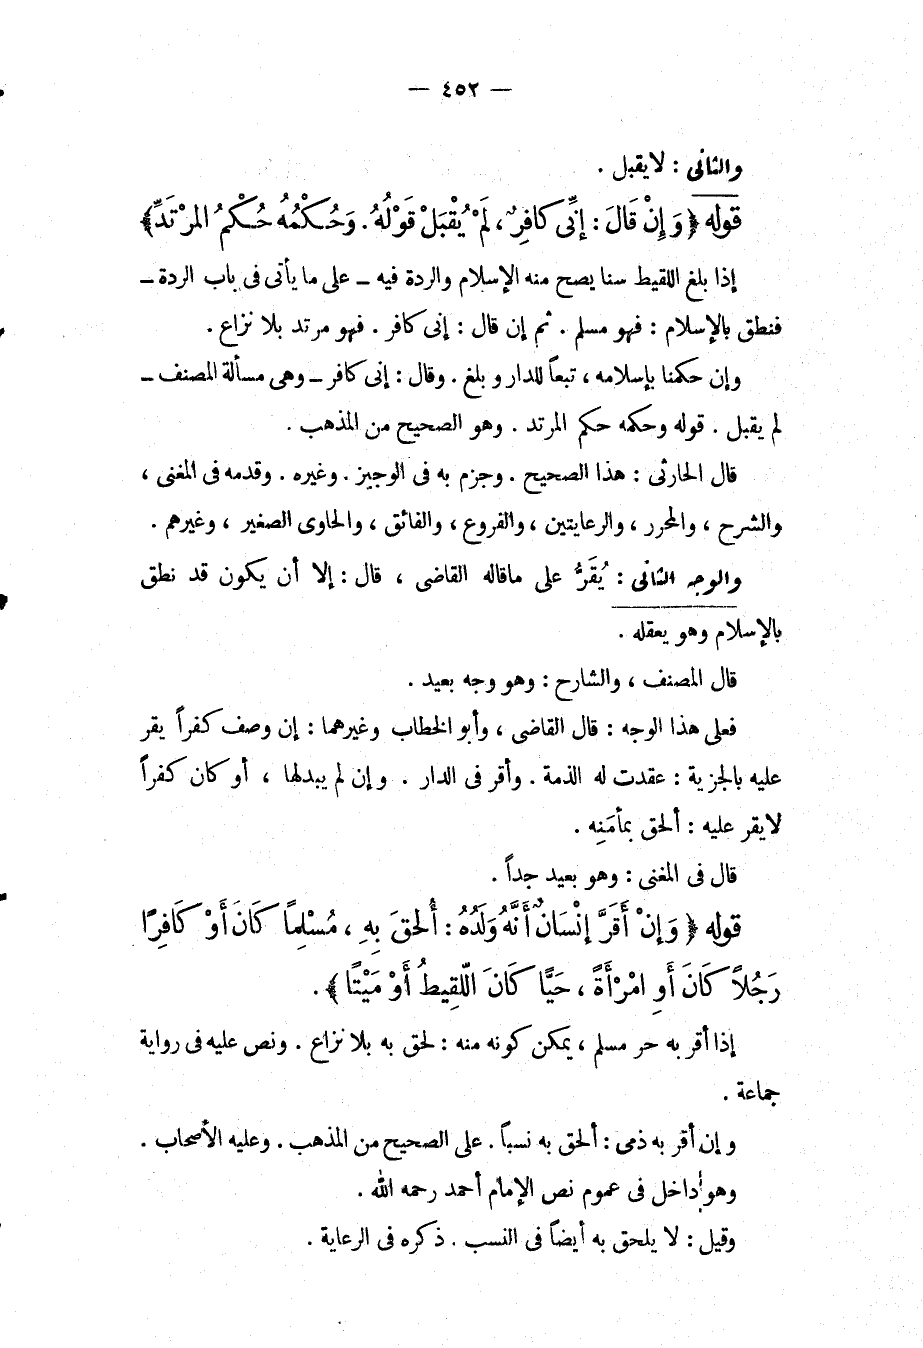 — ٤٥٢ —
والثانى : لا يقبل .
قوله ﴿ وَإِنْ قَالَ : إِنِّى كافِرٌ ، لَمْ يُقْبَلْ قَوْلُهُ . وَحُكْمُهُ حُكْمُ المرْتَدِّ ﴾
إذا بلغ اللقيط سنا يصح منه الإسلام والردة فيه ــ على ما يأتى فى باب الردة ــ
فنطق بالإسلام : فهو مسلم . ثم إن قال : إنى كافر . فهو مرتد بلا نزاع .
وإن حكمنا بإسلامه ، تبعاً للدار وبلغ . وقال : إنى كافر ــ وهى مسألة المصنف ــ
لم يقبل . قوله وحكمه حكم المرتد . وهو الصحيح من المذهب .
قال الحارثى : هذا الصحيح . وجزم به فى الوجيز . وغيره . وقدمه فى المغنى ،
والشرح ، والمحرر ، والرعايتين ، والفروع ، والفائق ، والحاوى الصغير ، وغيرهم .
والوجه الثانى : يُقَرُّ على ماقاله القاضى ، قال : إلا أن يكون قد نطق
بالإسلام وهو يعقله .
قال المصنف ، والشارح : وهو وجه بعيد .
فعلى هذا الوجه : قال القاضى ، وأبو الخطاب وغيرهما : إن وصف كفراً يقر
عليه بالجزية : عقدت له الذمة . وأقر فى الدار . وإن لم يبدلها ، أو كان كفراً
لايقر عليه : ألحق بمأمَنِه .
قال فى المغنى : وهو بعيد جداً .
قوله ﴿ وَإِنْ أَقَرَّ إِنْسَانٌ أَنَّهُ وَلَدُهُ : أُلحِقَ بِهِ ، مُسْلِماً كَانَ أَوْ كَافِرًا
رَجُلاً كَانَ أَوِ امْرَأَةً ، حَيًّا كَانَ اللّقِيطُ أَوْ مَيْتًا ﴾ .
إذا أقر به حر مسلم ، يمكن كونه منه : لحق به بلا نزاع . ونص عليه فى رواية
جماعة .
وإن أقر به ذمى : ألحق به نسباً . على الصحيح من المذهب . وعليه الأصحاب .
وهو داخل فى عموم نص الإمام أحمد رحمه الله .
وقيل : لا يلحق به أيضاً فى النسب . ذكره فى الرعاية .